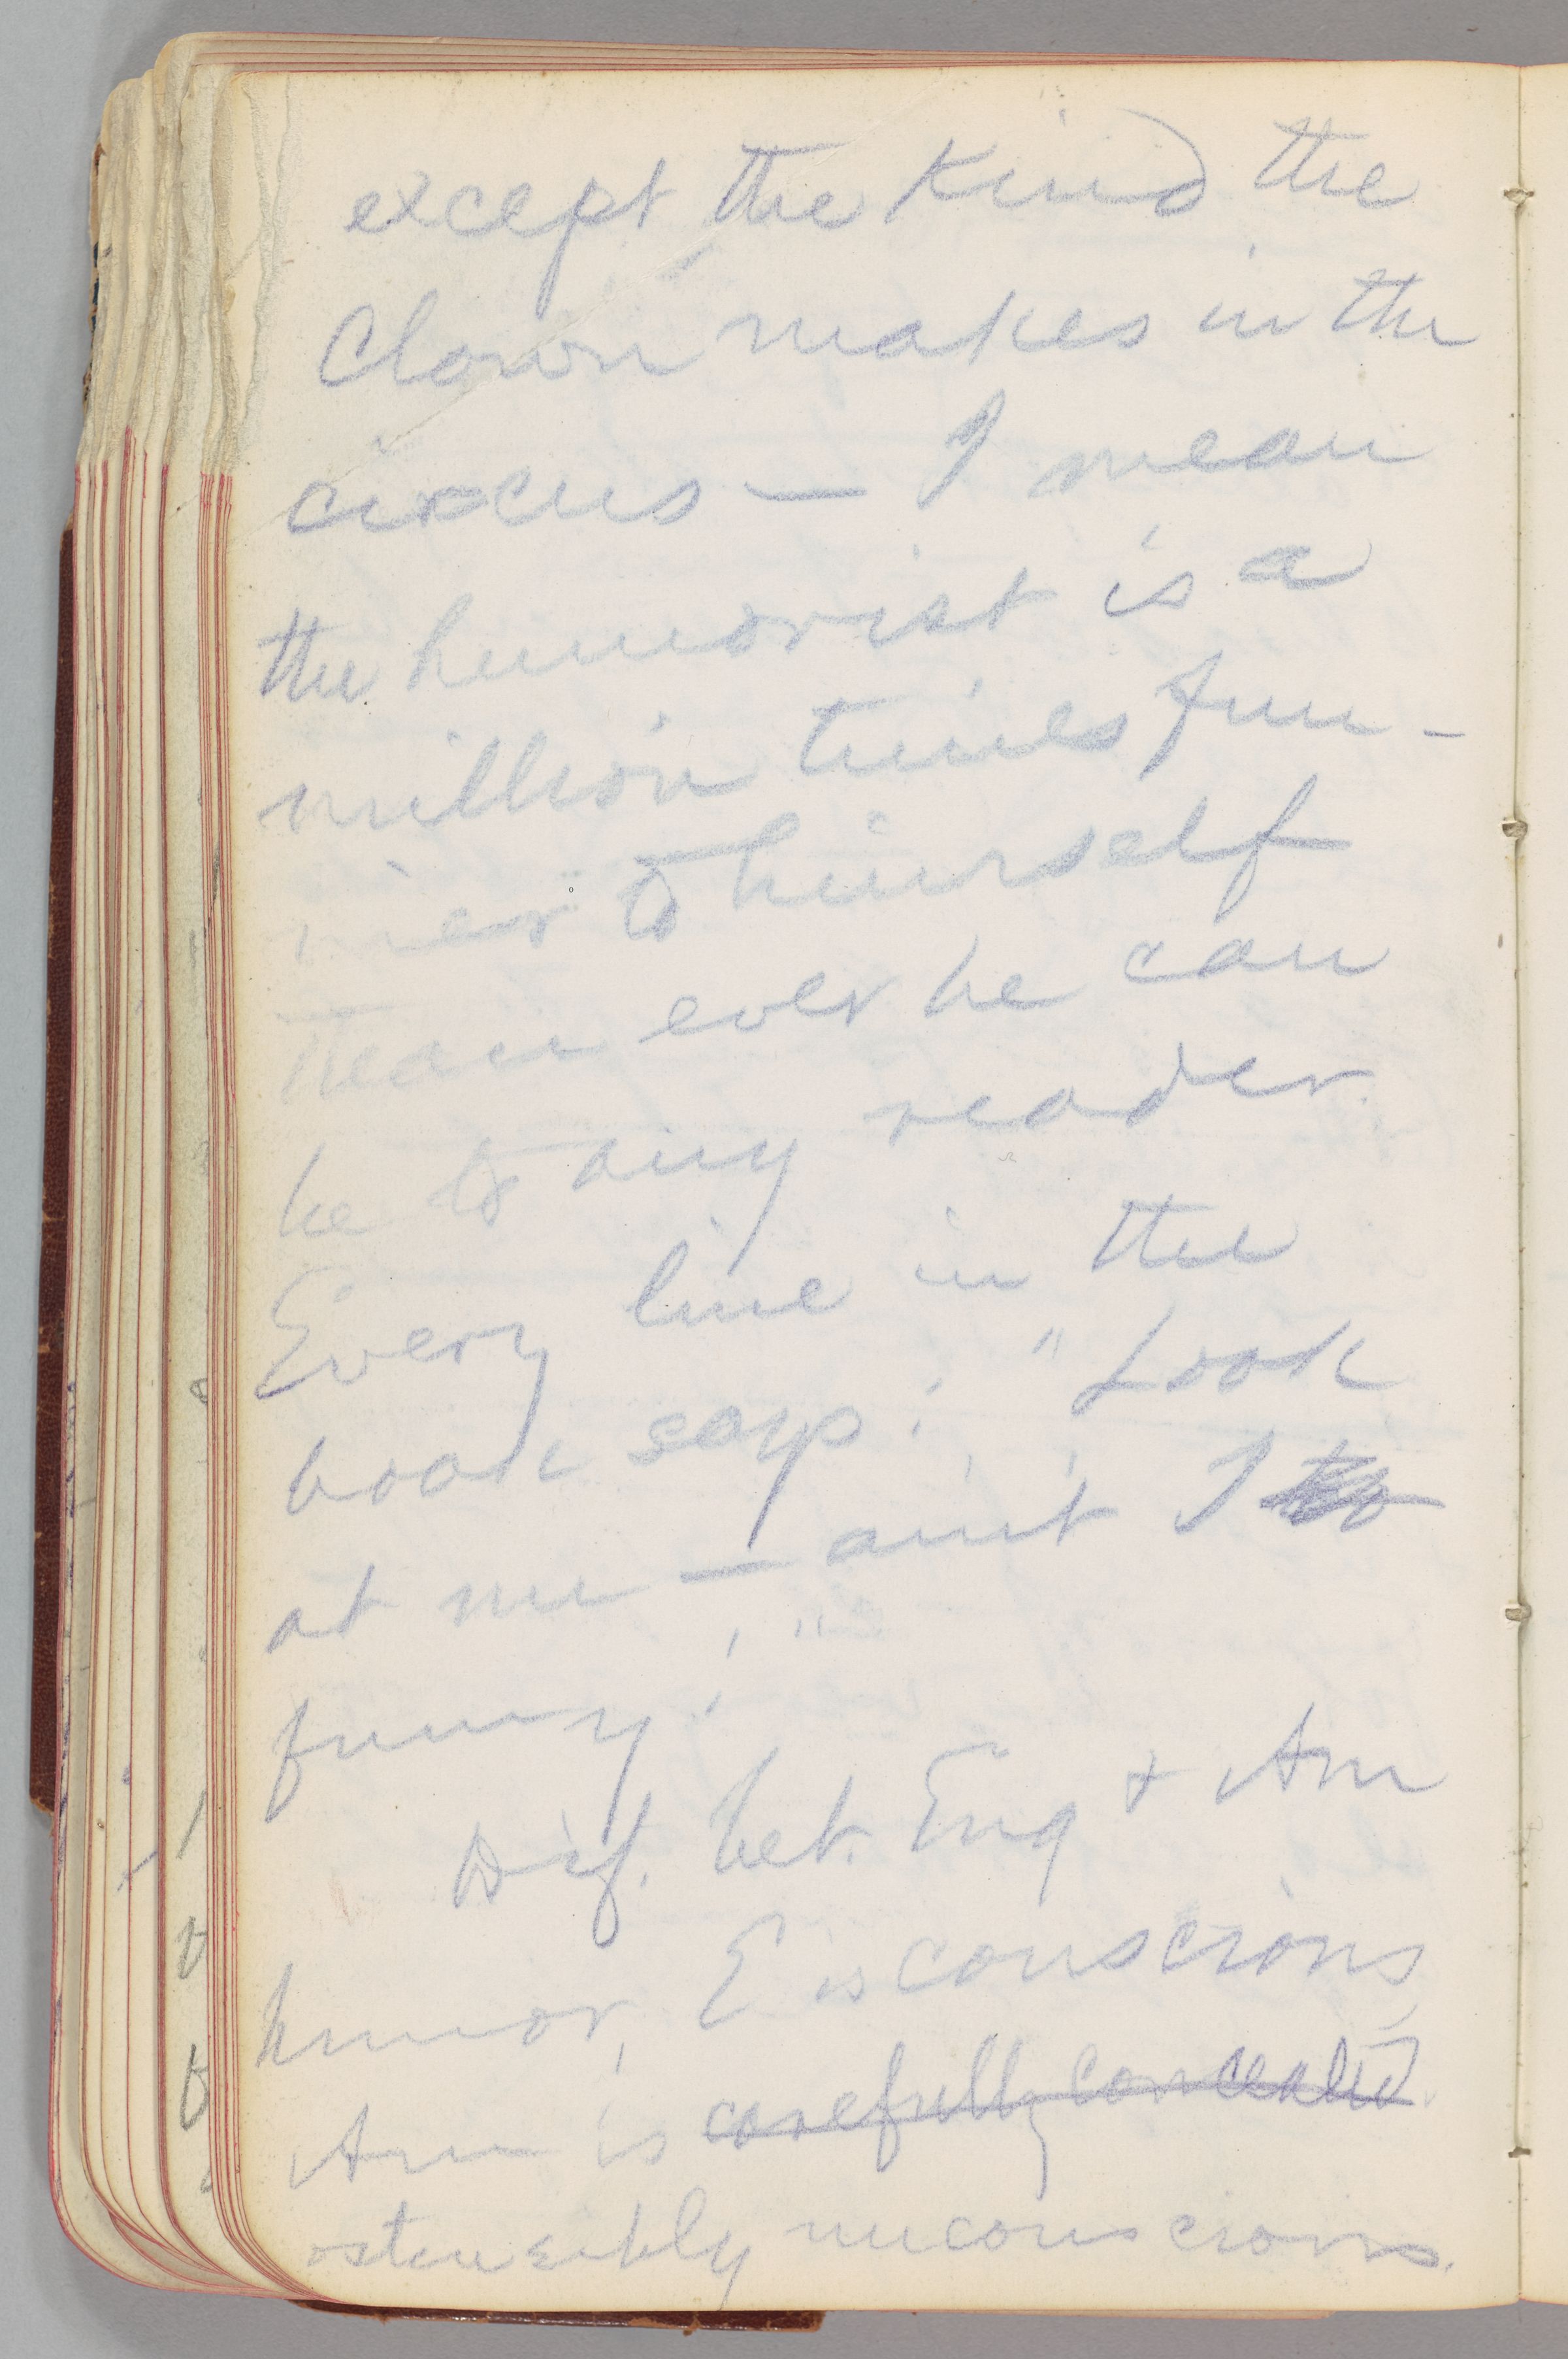 except the kind the
Clown makes in the
circus — I mean
the humorist is a
million times fun-
nier to himself
than ever he can
be to any reader.
Every line in the
book says: "Look
at me — ain't I
funny!"
Dif. bet. Eng & Am
humor, E is conscious,
Am is carefully concealed.
ostensibly unconscious.